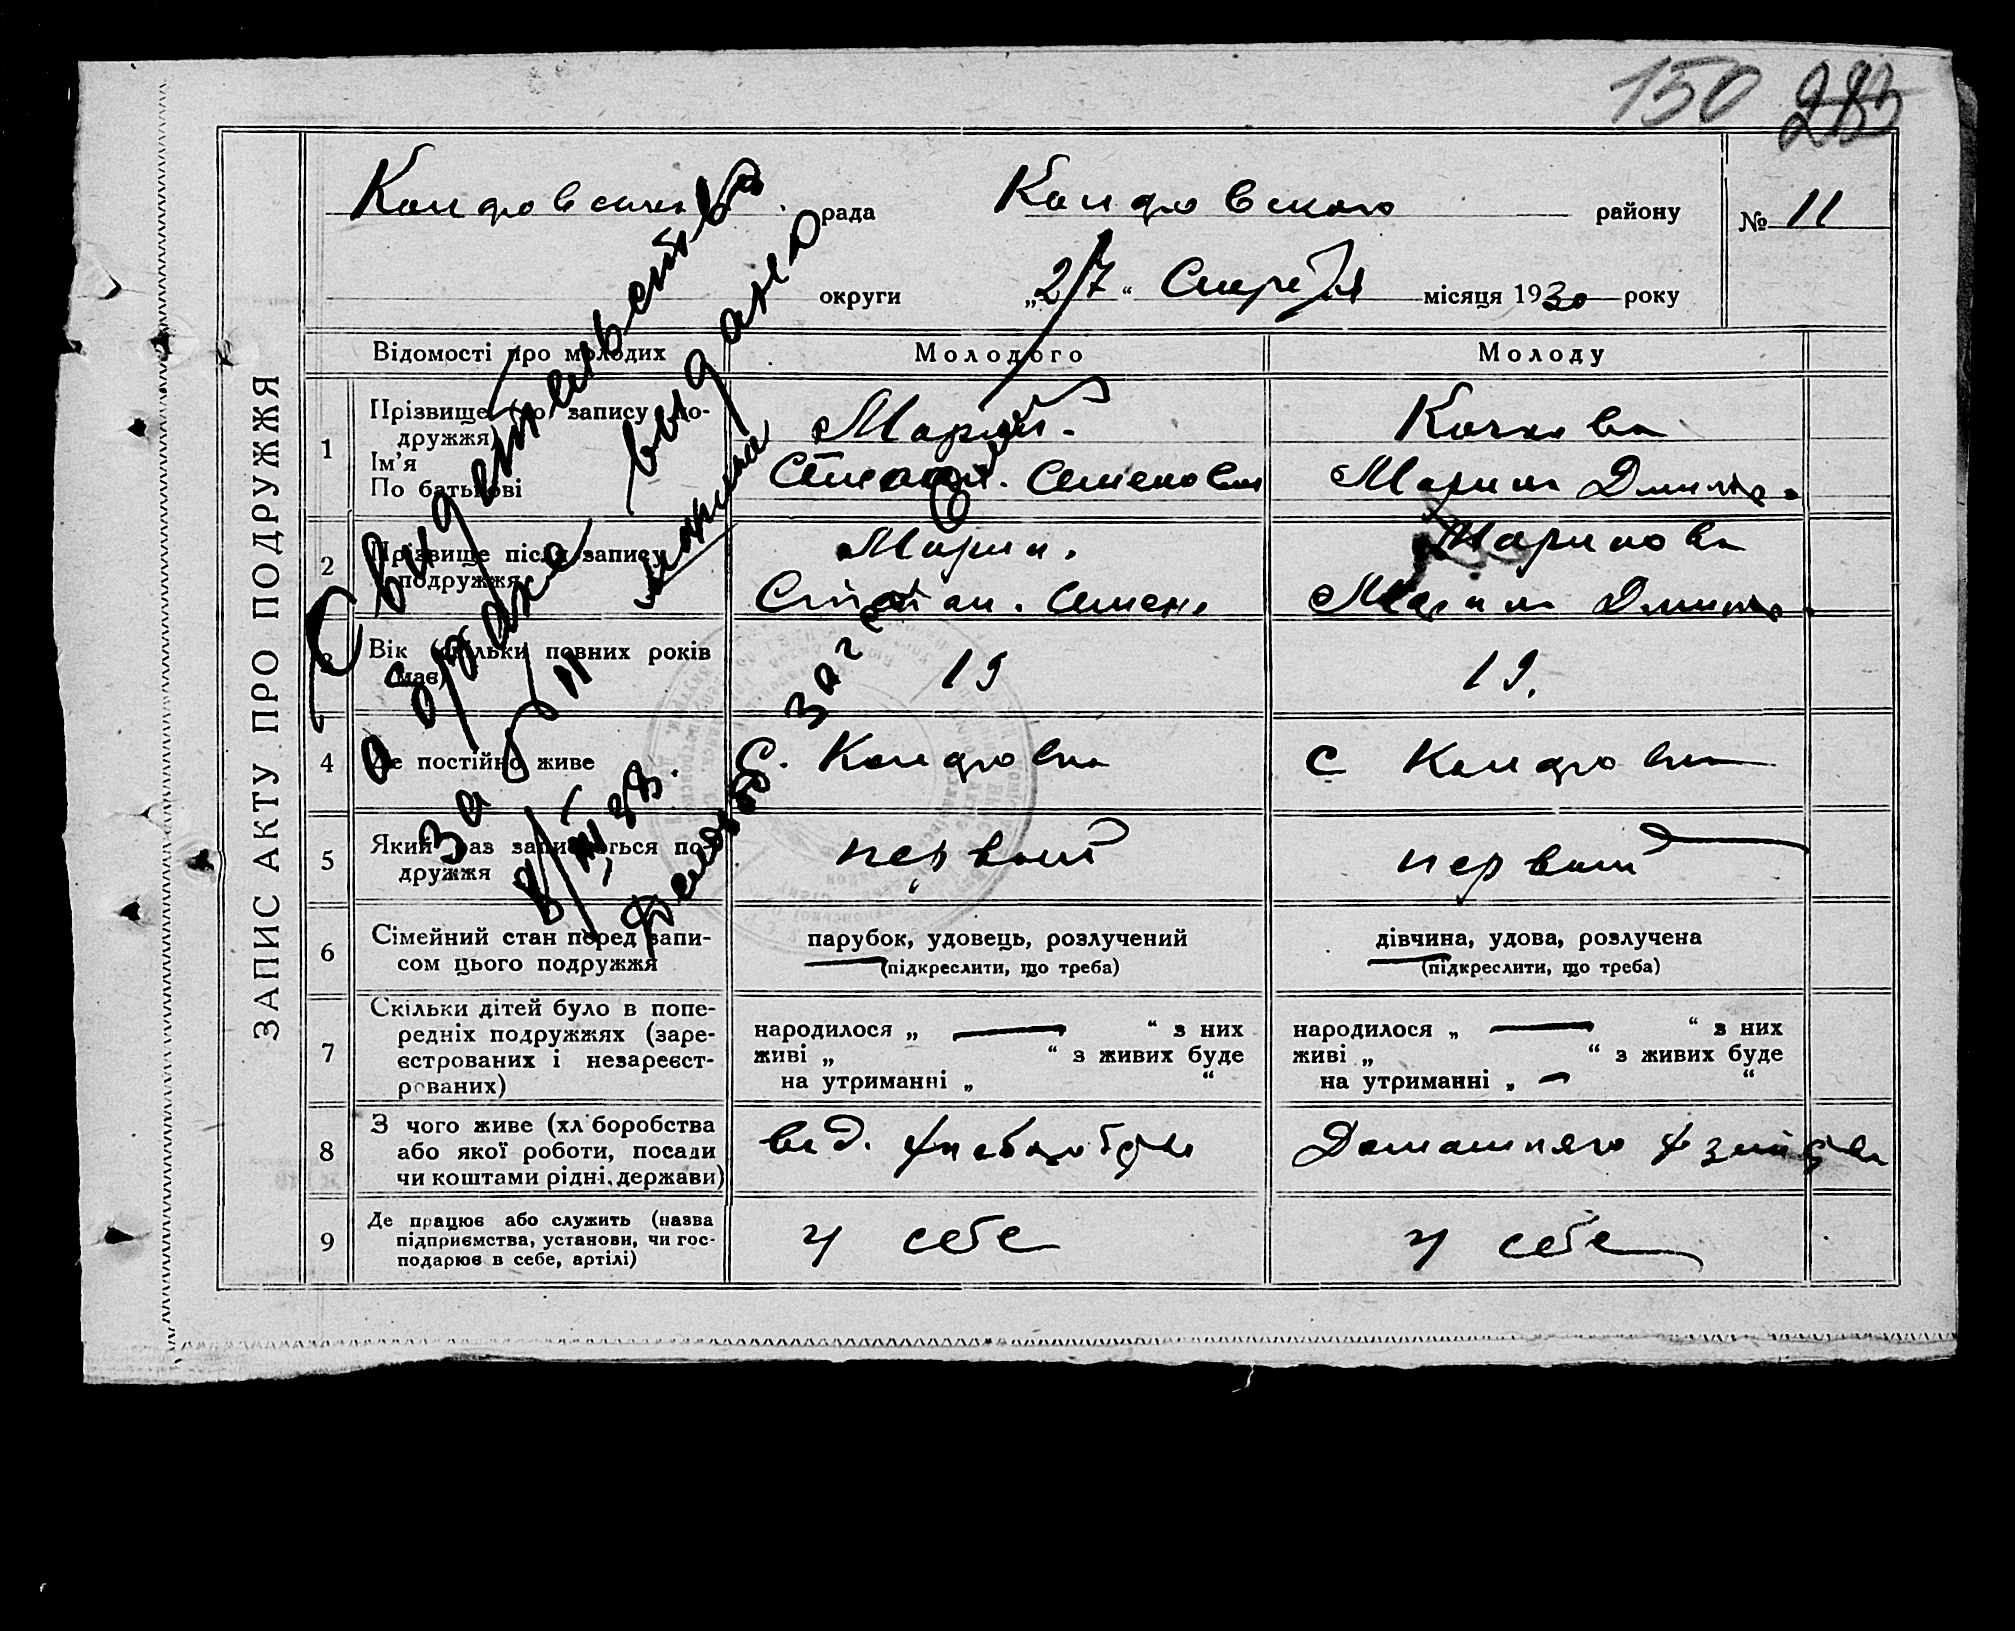 150 283
ЗАПИС АКТУ ПРО ПОДРУЖЖЯ
рада
району
№ 11
округи „27“ місяця 1930 року
Відомості про молодих
Молодого
Молоду
1
Прізвище (до запису по-
дружжя)
Ім’я
По батькові
Марин.
Степан. Семенович
Качкова
Марина Дмитр.
2
Прізвище після запису
подружжя
Марин.
Степан. Семен.
Маринова
Марина Дмитр.
3
Вік (скільки повних років
має)
19
19.
4
Де постійно живе
с. Кандровка
с Кандровка
5
Який раз записується по-
дружжя
первый
первый
6
Сімейний стан перед запи-
сом цього подружжя
парубок, удовець, розлучений
(підкреслити, що треба)
дівчина, удова, розлучена
(підкреслити, що треба)
7
Скільки дітей було в попе-
редніх подружжях (заре-
єстрованих і незареєст-
рованих)
народилося „ — “ з них
живі „ “ з живих буде
на утриманні „ “
народилося „ — “ з них
живі „ “ з живих буде
на утриманні „ — “
8
З чого живе (хліборобства
або якої роботи, посади
чи коштами рідні, держави)
Домашняго
9
Де працює або служить (назва
підприємства, установи, чи гос-
подарює в себе, артілі)
у себе
у себе
Свидетельство
о браке выдано
за № 11